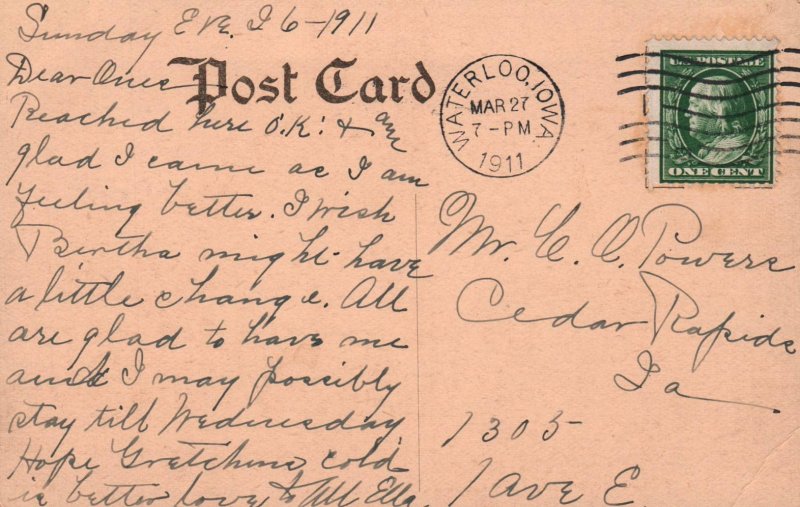 Sunday Eve. 26-1911
Dear Ones
Post Card
Reached here O.K. & am
glad I came as I am
feeling better. I wish
Bertha might have
a little change. All
are glad to have me
and I may possibly
stay till Wednesday
Hope Gretchens cold
is better love to All Ella
WATERLOO, IOWA.
MAR 27
7-PM
1911
U.S. POSTAGE
ONE CENT
Mr. C. C. Powers
Cedar Rapids
Ia
1305
1 ave E.